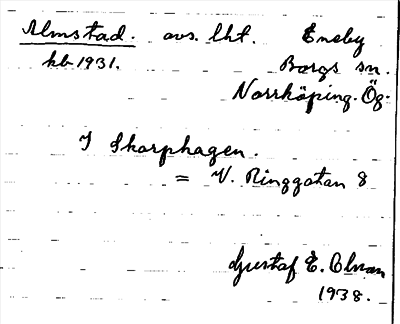 Almstad. avs. lht. Eneby
kb 1931. Borgs sn.
Norrköping. Ög.
I Skarphagen.
= V. Ringgatan 8
Gustaf E.
1938.